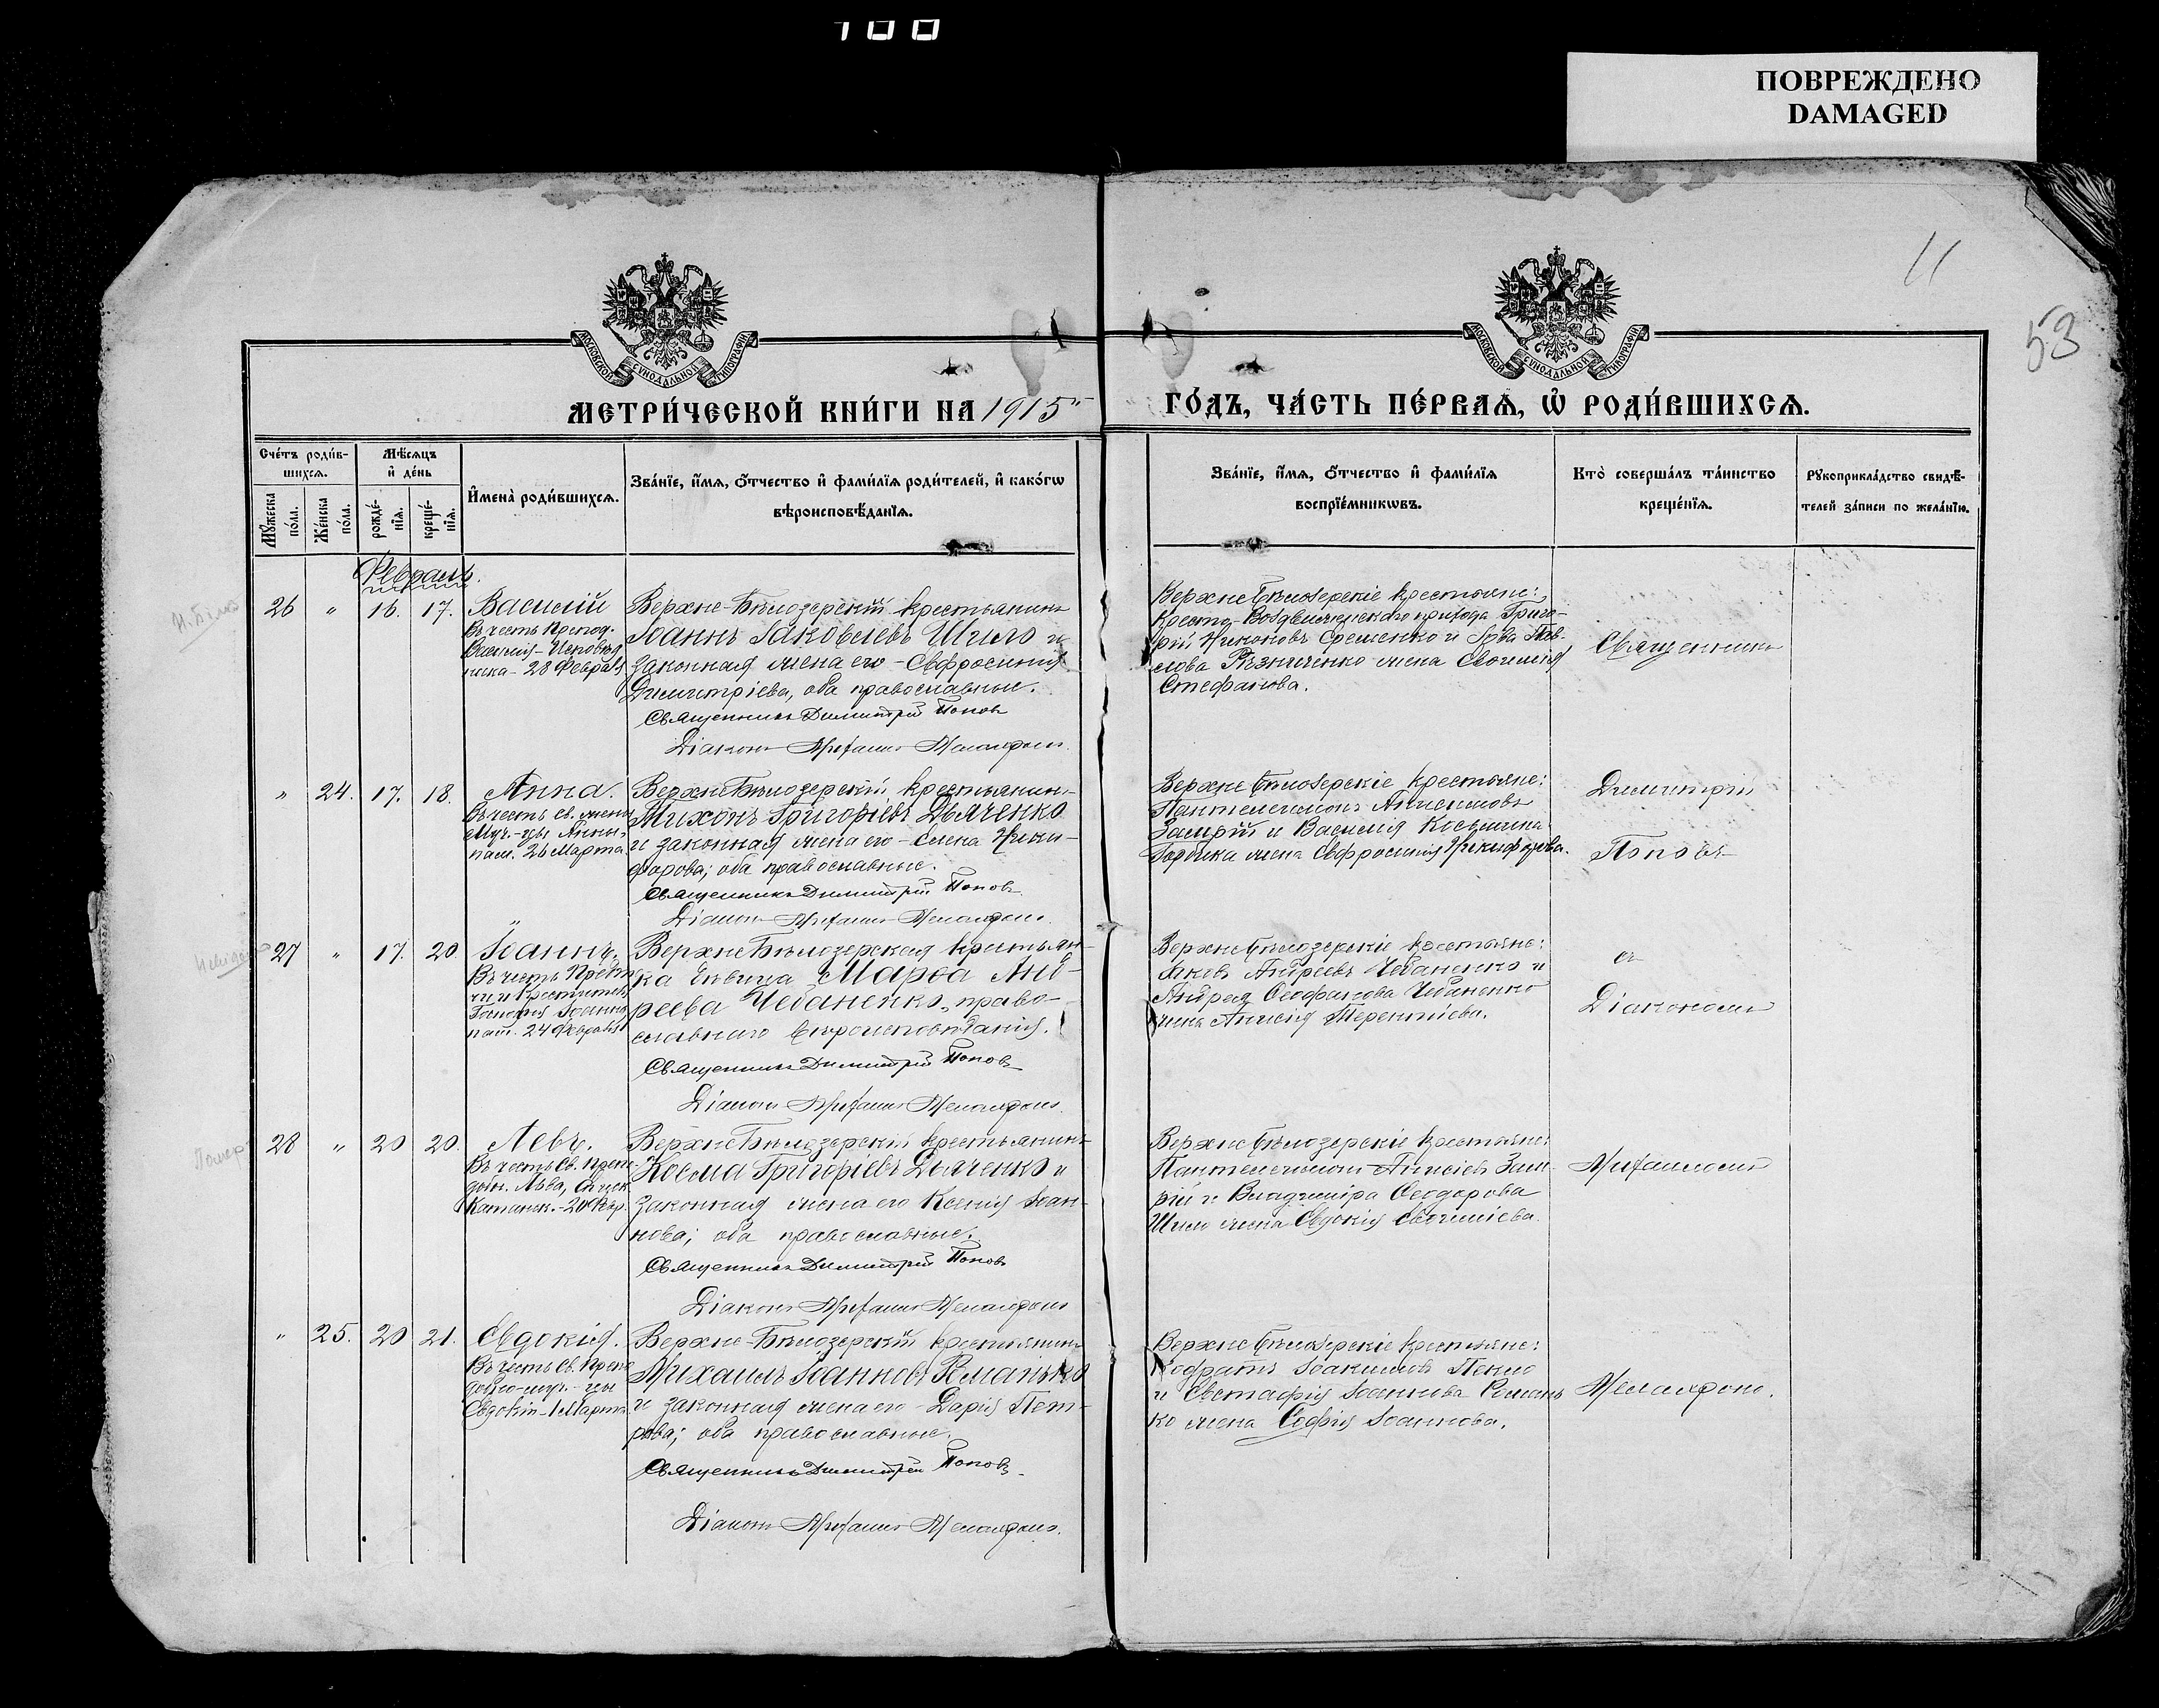 100
ПОВРЕЖДЕНО
DAMAGED
11
53
МОСКОВСКОЙ СѴНОДАЛЬНОЙ ТИПОГРАФІИ
МОСКОВСКОЙ СѴНОДАЛЬНОЙ ТИПОГРАФІИ
МЕТРИ́ЧЕСКОЙ КНИ́ГИ НА 1915
ГО́ДЪ, ЧА́СТЬ ПЕ́РВАѦ, Ѡ҆ РОДИ́ВШИХСѦ.
Сче́тъ роди́в-
шихсѧ.
Мѣ́сѧцъ
и҆ де́нь
Мꙋ́жеска
по́ла.
Же́нска
по́ла.
рожде́-
нїѧ.
креще́-
нїѧ.
И҆мена̀ роди́вшихсѧ.
Зва́нїе, и҆́мѧ, ѻ҆́тчество и҆ фами́лїѧ роди́телей, и҆ како́гѡ
вѣроисповѣ́данїѧ.
Зва́нїе, и҆́мѧ, ѻ҆́тчество и҆ фами́лїѧ
воспрїе́мникѡвъ.
Кто̀ соверша́лъ та́инство
креще́нїѧ.
Рꙋкоприкла́дство свидѣ́-
телей за́писи по жела́нїю.
Февраль.
26 " 16. 17. Василій
Въ честь Препод.
Василія - Исповѣд
ника - 28 Февраля
Верхне-Бѣлозерскій крестьянинъ
Іоаннъ Іаковлевъ Шило и
законная жена его - Евфросинія
Димитріева, оба православные.
Священникъ Димитрій Поповъ
Діаконъ
Верхнебѣлозерскіе крестьяне:
Кресто-Воздвиженскаго прихода Григо-
рій Никоновъ Еременко и Павлова жена Евгенія
Стефанова.
Священникъ
" 24. 17. 18. Анна.
Въ честь Св.
Муч.-цы Анны,
пам. 26 Марта
Верхнебѣлозерскій крестьянинъ
Тихонъ Григорьевъ Дьяченко
и законная жена его - Елена Ники-
форова; оба православные.
Священникъ Димитрій Поповъ
Діаконъ
Верхнебѣлозерскіе крестьяне:
Пантелеимонъ
и Василія Косьмина
жена Евфросинія Никифорова.
Димитрій
Поповъ
27 " 17. 20. Іоаннъ.
Въ честь Предт
чи и Крестителя
Господня Іоанна
пам. 24 Февраля
Верхнебѣлозерская крестьян-
ка дѣвица Марѳа Анд-
реева Чебаненко, право-
славнаго вѣроисповѣданія.
Священникъ Димитрій Поповъ
Діаконъ
Верхнебѣлозерскіе крестьяне:
Яковъ Андреевъ Чебаненко и
Андрея Ѳеофанова Чебаненко
жена Терентіева.
съ
Діакономъ
28 " 20 20. Левъ.
Въ честь Св. Препо-
добн. Льва, Еписк.
Катанск. - 20 Февр.
Верхнебѣлозерскій крестьянинъ
Косма Григорьевъ Дьяченко и
законная жена его Ксенія Іоан-
нова; оба православные.
Священникъ Димитрій Поповъ
Діаконъ
Верхнебѣлозерскіе крестьяне:
Пантелеимонъ
и Владиміра Ѳеодорова
Шило жена Евдокія Евгеніева.
" 25. 20 21. Евдокія.
Въ честь Св. Препо
добно-муч.-цы
Евдокіи - 1 Марта
Верхне-Бѣлозерскій крестьянинъ
Михаилъ Іоанновъ Романько
и законная жена его - Дарія Пет-
рова; оба православные.
Священникъ Димитрій Поповъ
Діаконъ
Верхнебѣлозерскіе крестьяне:
Кодратъ Іоакимовъ
и Евстафія Іоаннова Романь
ко жена Софія Іоаннова.